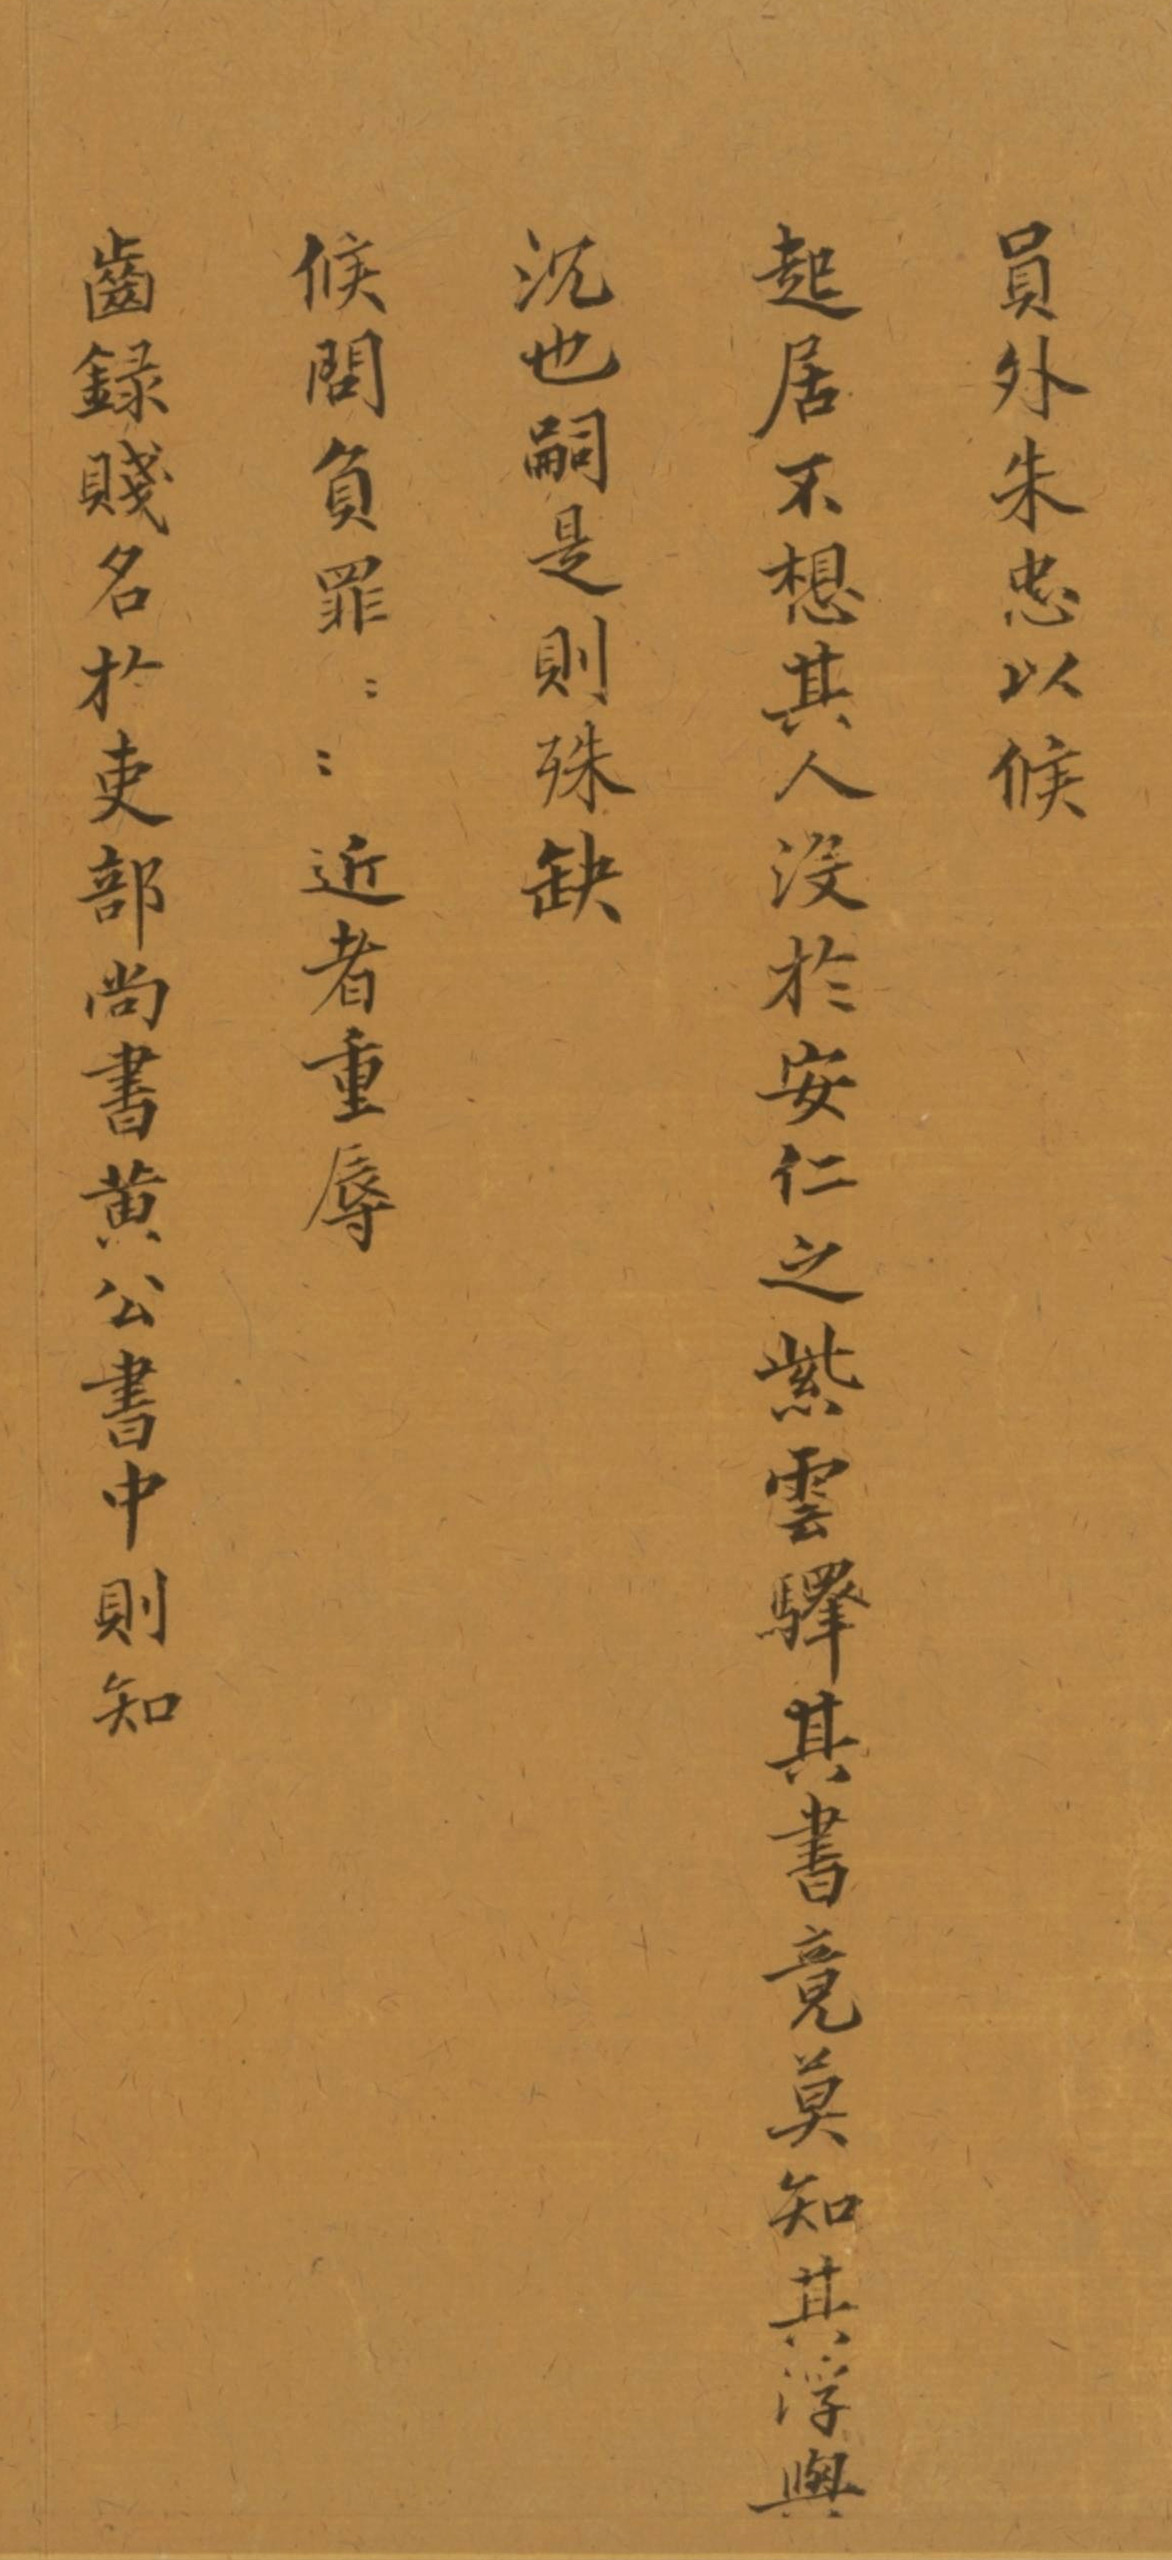 員外朱忠以候
起居不想其人沒於安仁之紫雲驛其書竟莫知其浮與
沉也嗣是則殊缺
候問負罪〻〻近者重辱
齒録賤名於吏部尚書黄公書中則知